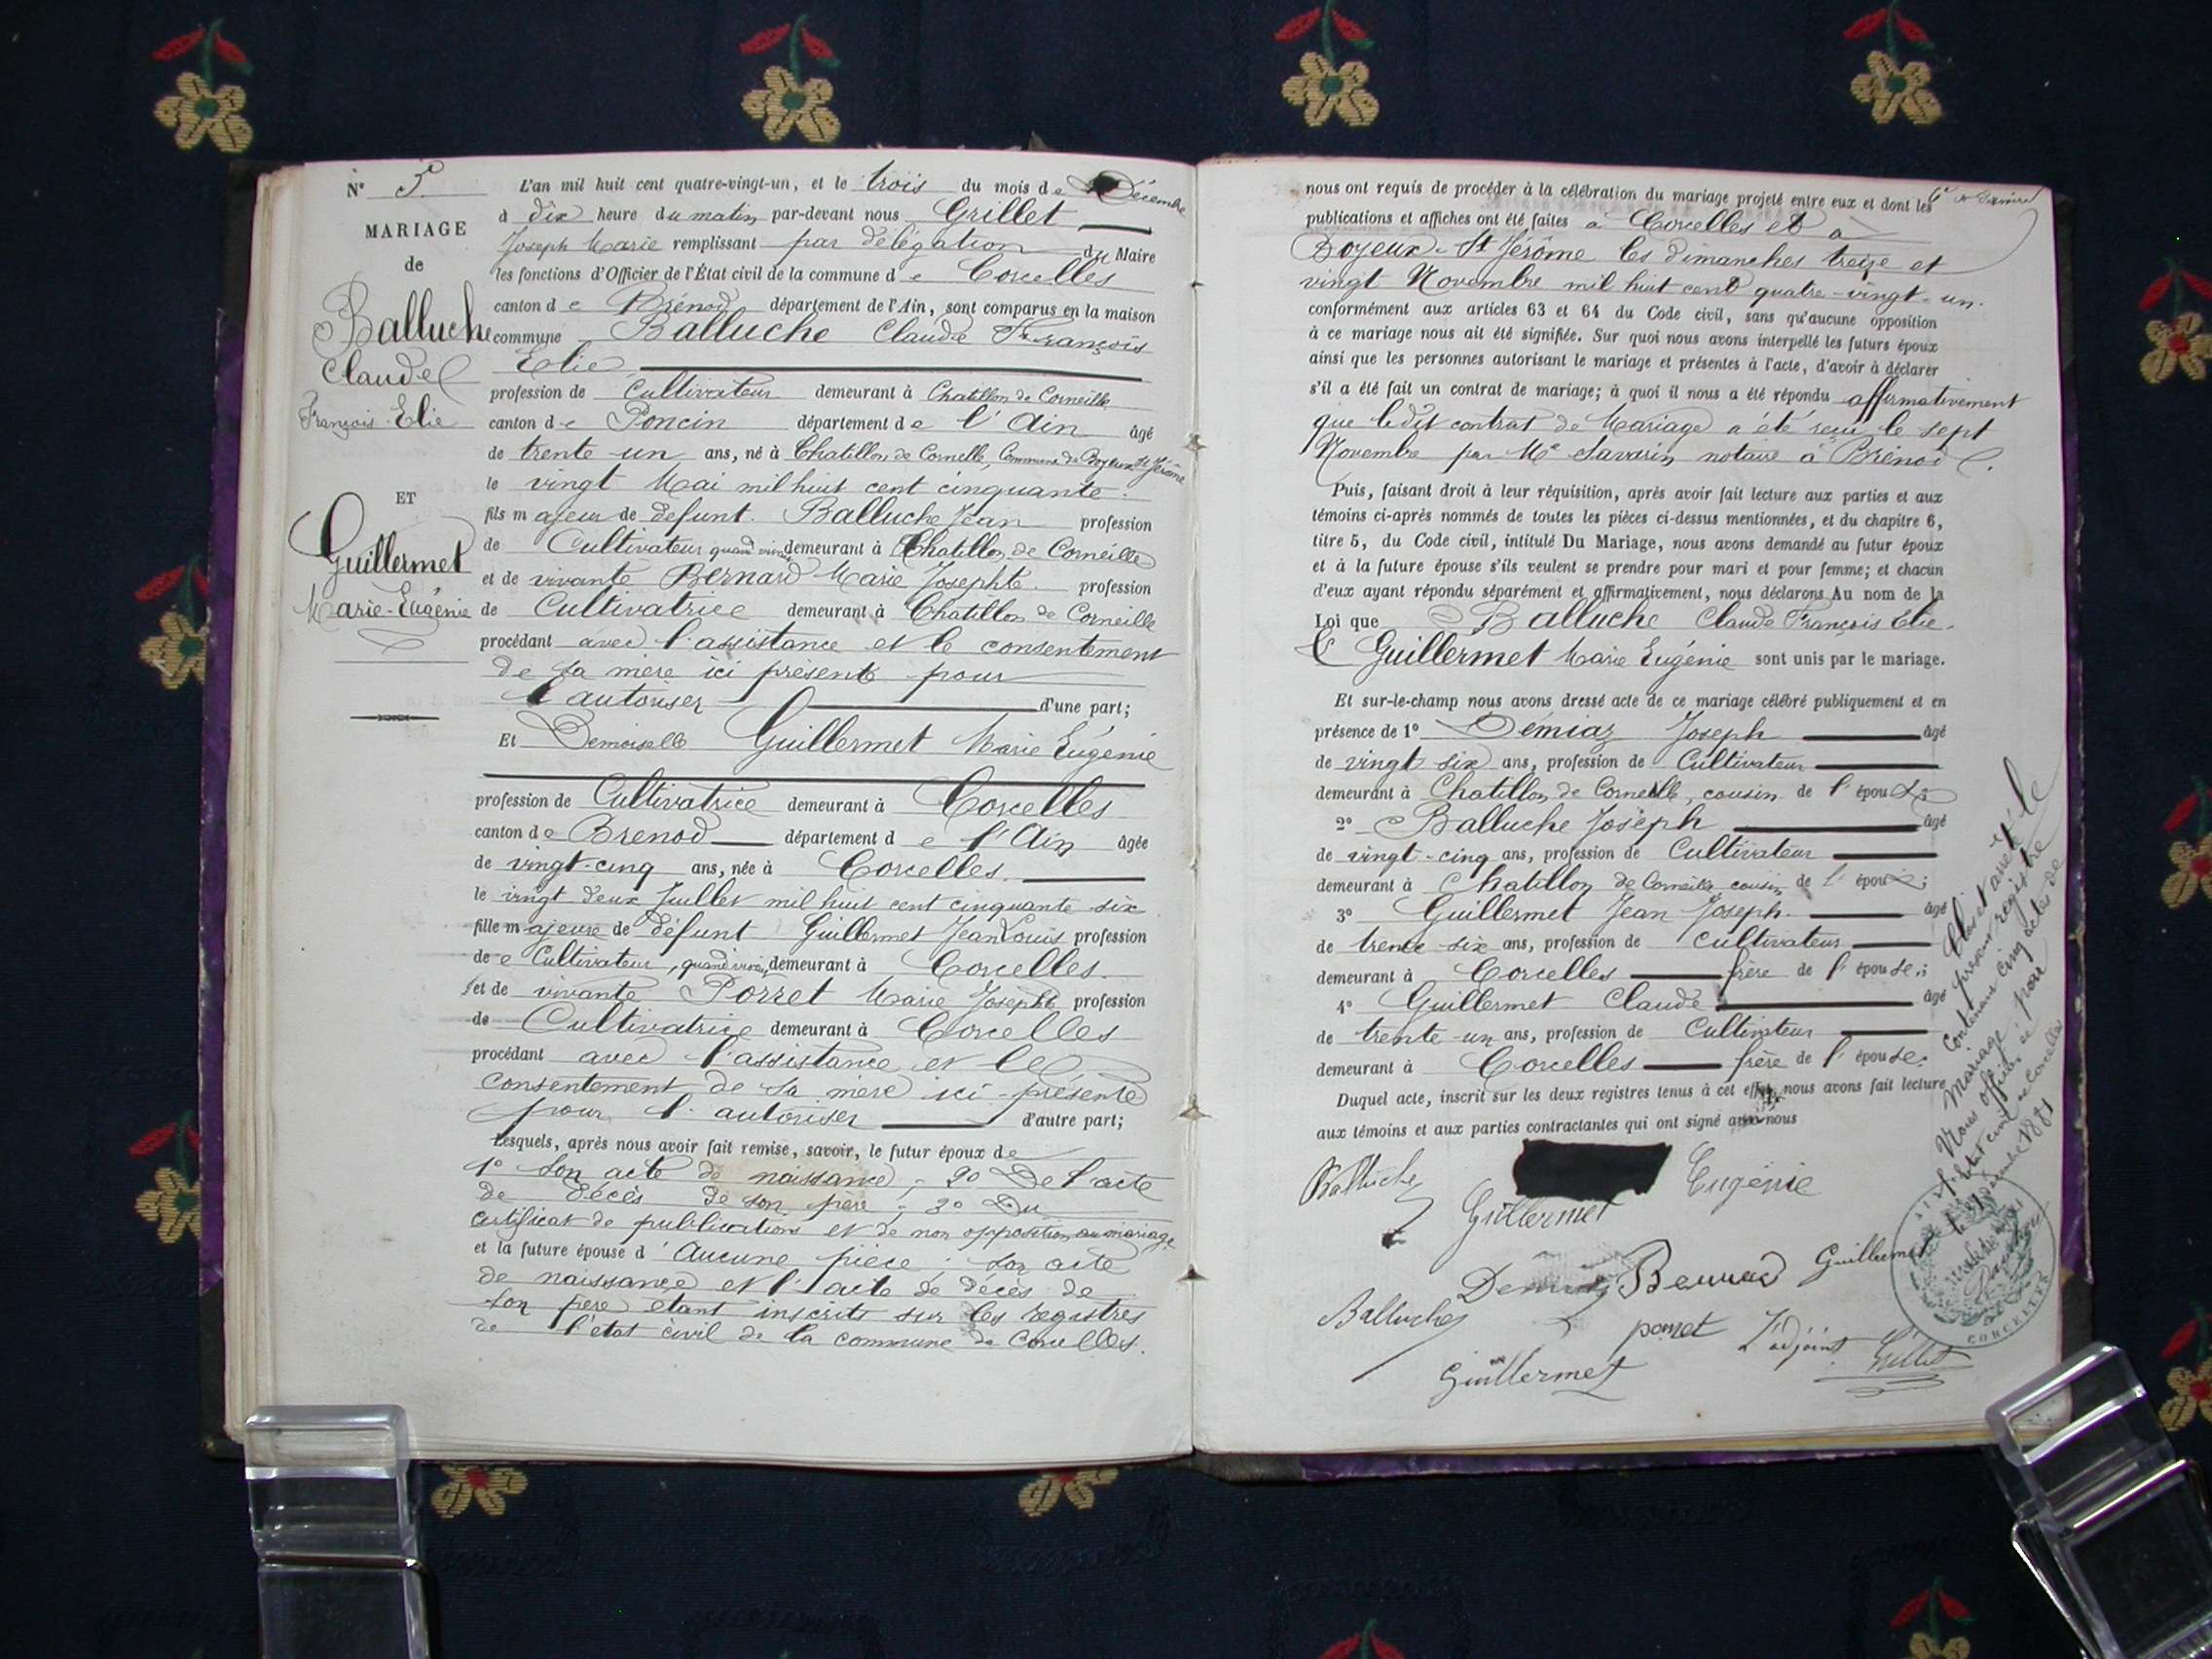 N° 5
MARIAGE
de
Balluche
Claude
François Elie
ET
Guillermet
Marie-Eugénie
L'an mil huit cent quatre-vingt-un, et le trois du mois de Décembre
à dix heure du matin par-devant nous Grillet
Joseph Marie remplissant par délégation du Maire
les fonctions d'Officier de l'État civil de la commune de Corcelles
canton de Brénod département de l'Ain, sont comparus en la maison
commune Balluche Claude François
Elie
profession de Cultivateur demeurant à Chatillon de Corneille
canton de Poncin département de l'Ain âgé
de trente-un ans, né à Chatillon de Cornelle, Commune de Boyeux St Jérôme
le vingt Mai mil huit cent cinquante.
fils majeur de défunt Balluche Jean profession
de Cultivateur quand vivait demeurant à Chatillon de Corneille
et de vivante Bernard Marie Josephte profession
de Cultivatrice demeurant à Chatillon de Corneille
procédant avec l'assistance et le consentement
de sa mère ici présente pour
l'autoriser d'une part;
Et Demoiselle Guillermet Marie Eugénie
profession de Cultivatrice demeurant à Corcelles
canton de Brenod département de l'Ain âgée
de vingt-cinq ans, née à Corcelles.
le vingt deux Juillet mil huit cent cinquante six
fille majeure de défunt Guillermet Jean Louis profession
de Cultivateur, quand vivait, demeurant à Corcelles.
et de vivante Porret Marie Josephte profession
de Cultivatrice demeurant à Corcelles
procédant avec l'assistance et le
consentement de sa mère ici présente
pour l'autoriser d'autre part;
Lesquels, après nous avoir fait remise, savoir, le futur époux de
1° Son acte de naissance; 2° De l'acte
de décès de son père; 3° Du
certificat de publications et de non opposition au mariage
et la future épouse d'Aucune pièce; son acte
de naissance et l'acte de décès de
son père étant inscrits sur les registres
de l'état civil de la commune de Corcelles.
nous ont requis de procéder à la célébration du mariage projeté entre eux et dont les
publications et affiches ont été faites à Corcelles et à
Boyeux-St Jérôme les dimanches treize et
vingt Novembre mil huit cent quatre-vingt-un.
conformément aux articles 63 et 64 du Code civil, sans qu'aucune opposition
à ce mariage nous ait été signifiée. Sur quoi nous avons interpellé les futurs époux
ainsi que les personnes autorisant le mariage et présentes à l'acte, d'avoir à déclarer
s'il a été fait un contrat de mariage; à quoi il nous a été répondu affirmativement
que ledit contrat de Mariage a été reçu le sept
Novembre par Me Savarin notaire à Brénod.
Puis, faisant droit à leur réquisition, après avoir fait lecture aux parties et aux
témoins ci-après nommés de toutes les pièces ci-dessus mentionnées, et du chapitre 6,
titre 5, du Code civil, intitulé Du Mariage, nous avons demandé au futur époux
et à la future épouse s'ils veulent se prendre pour mari et pour femme; et chacun
d'eux ayant répondu séparément et affirmativement, nous déclarons Au nom de la
Loi que Balluche Claude François Elie.
& Guillermet Marie Eugénie sont unis par le mariage.
Et sur-le-champ nous avons dressé acte de ce mariage célébré publiquement et en
présence de 1° Démiaz Joseph âgé
de vingt six ans, profession de Cultivateur
demeurant à Chatillon de Corneille, cousin de l'époux;
2° Balluche Joseph âgé
de vingt-cinq ans, profession de Cultivateur
demeurant à Chatillon de Corneille cousin de l'époux;
3° Guillermet Jean Joseph. âgé
de trente six ans, profession de Cultivateur
demeurant à Corcelles frère de l'épouse;
4° Guillermet Claude âgé
de trente-un ans, profession de Cultivateur
demeurant à Corcelles frère de l'épouse.
Duquel acte, inscrit sur les deux registres tenus à cet effet, nous avons fait lecture
aux témoins et aux parties contractantes qui ont signé avec nous
Balluche
Guillermet Eugénie
Demiaz Bernard Guillermet
Balluche
porret L'adjoint Grillet
Guillermet
Clos et arrêté le
présent registre
contenant cinq actes de
Mariage par
Nous officier de
l'état civil de Corcelles
le 31 Décembre 1881
CORCELLES